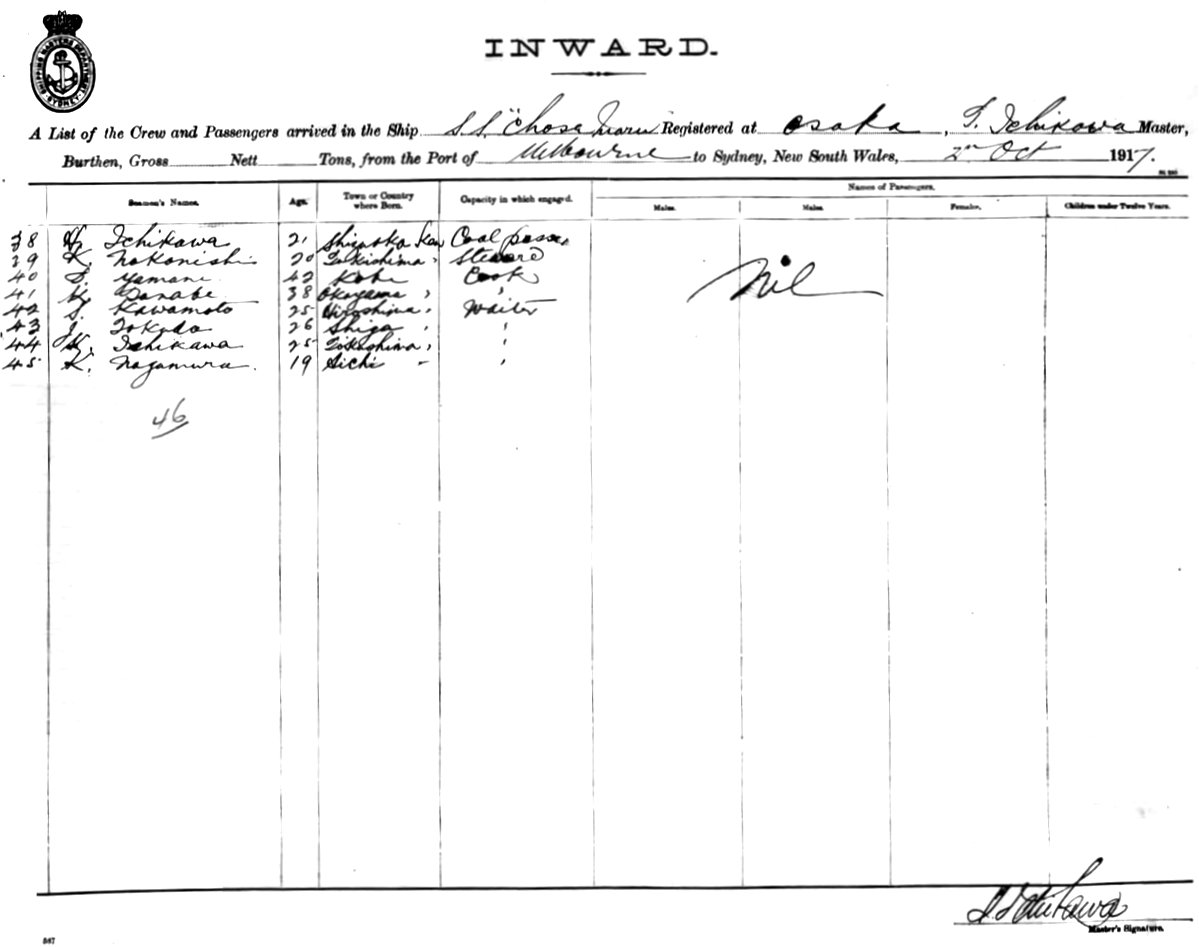 SHIPPING MASTERS DEPARTMENT SYDNEY
INWARD.
A List of the Crew and Passengers arrived in the Ship S.S. "Chosa Maru Registered at Osaka, I. Ichikawa Master,
Burthen, Gross Nett Tons, from the Port of Melbourne to Sydney, New South Wales, 2nd Oct 1917.
Names of Passengers.
Seamen's Names. Age. Town or Country where Born. Capacity in which engaged. Males. Males. Females. Children under Twelve Years.
38 H. Ichikawa 21 Shizuoka Ken Coal passer
39 K. Nakanishi 20 Steward
40 S. Yamane 42 Kobe Cook
41 Tanabe 38 Okayama " "
42 Kawamoto 25 Hiroshima " Waiter
43 Tokuda 26 Shiga " "
44 K. Ichikawa 25 " "
45 K. Nagamura. 19 Aichi " "
Nil
46
Ichikawa
Master's Signature.
567